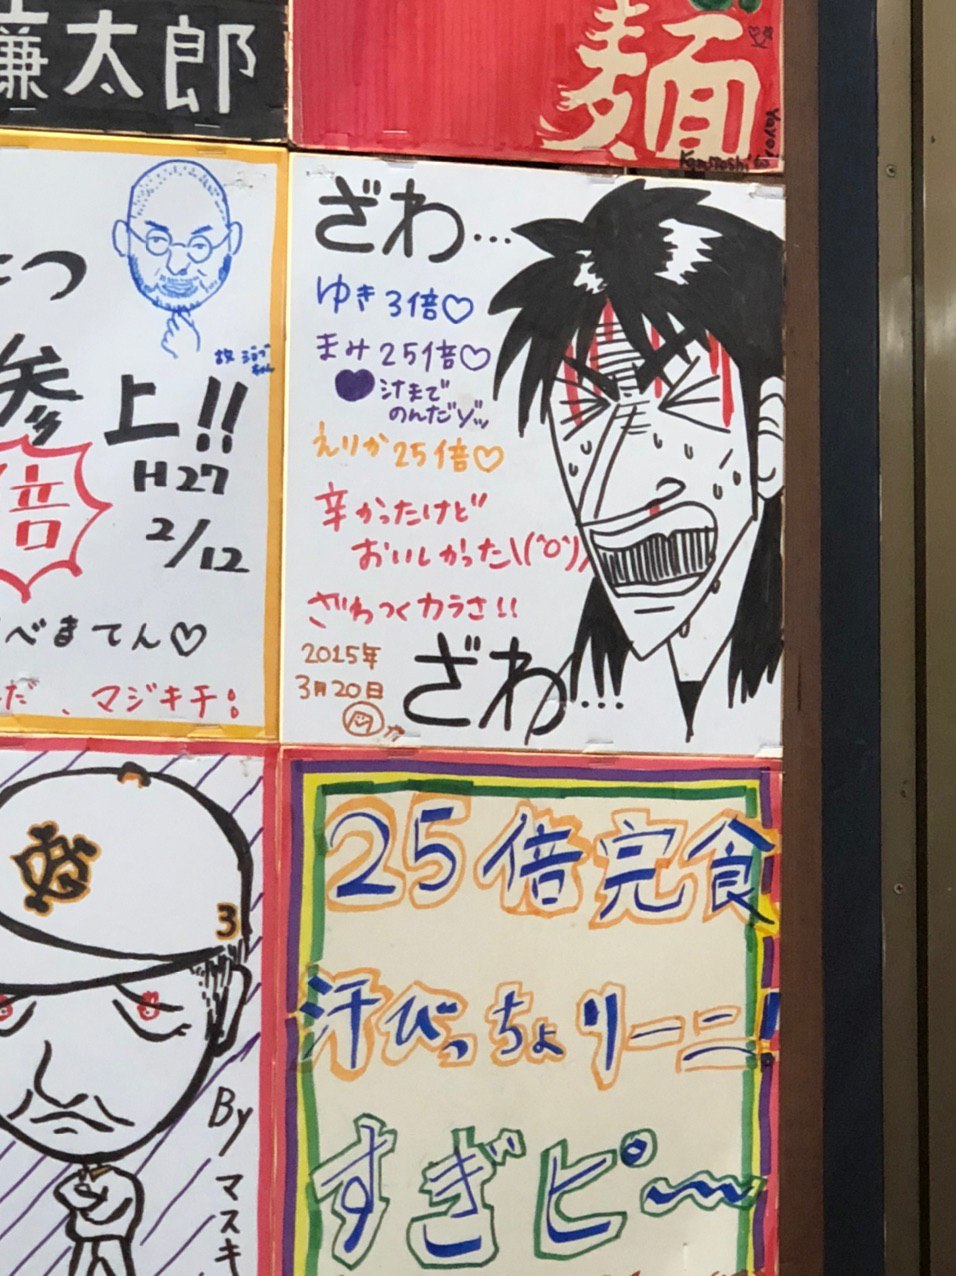 謙太郎
麺
つ
参上!!
倍
H27
2/12
故ジョブ
ちゃん
べまてん♡
だ、マジキチ!
ざわ…
ゆき3倍♡
まみ25倍♡
汁まで
のんだゾッ
えりか25倍♡
辛かったけど
おいしかった\(^o^)/
ざわつくカラさ!!
2015年
3月20日
ざわ…
3
By
マスキ
25倍完食
汗びっちょりーニ!
すぎピ〜